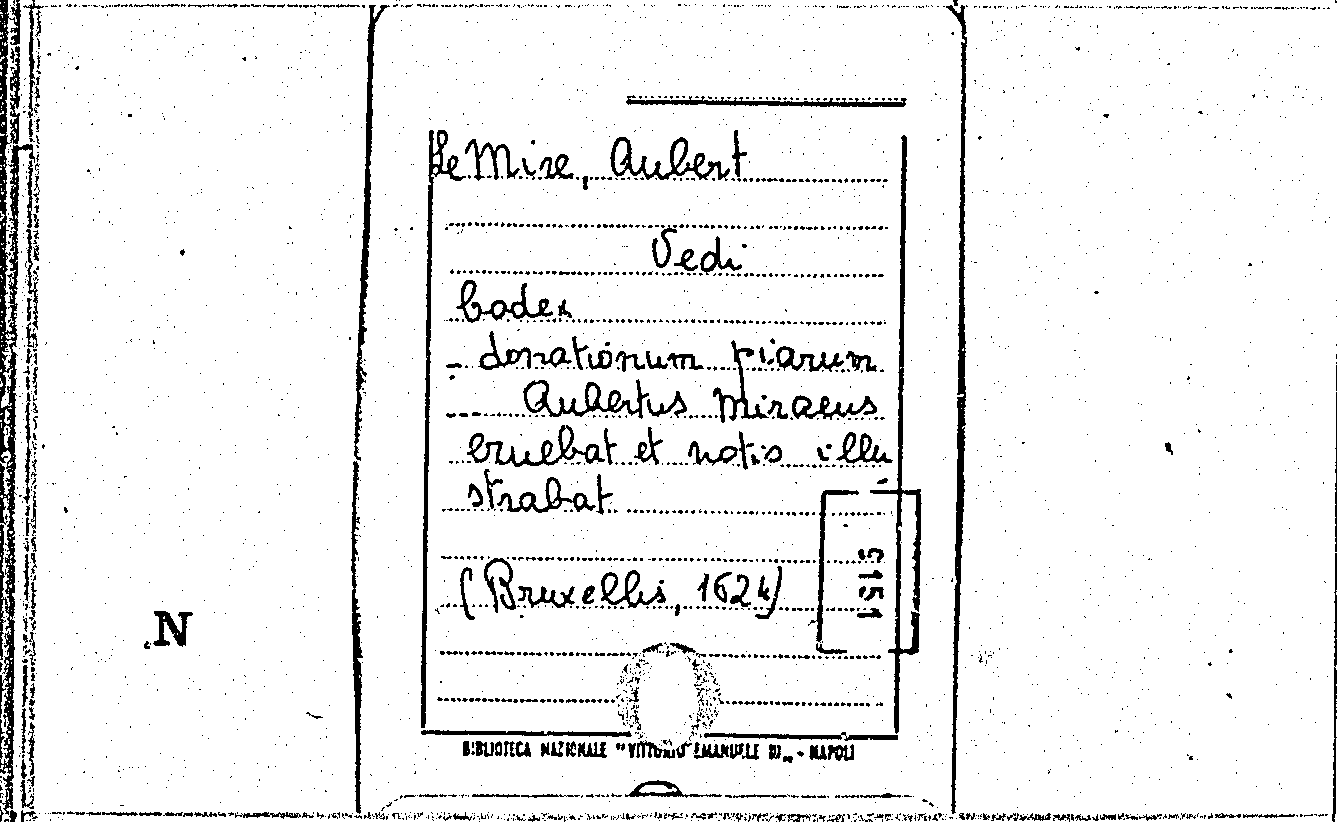 Le Mire, Aubert
Vedi
Codex
- donationum piarum
... Aubertus Miraeus
eruebat et notis illu
strabat
(Bruxellis, 1624)
5151
N
BIBLIOTECA NAZIONALE "VITTORIO EMANUELE III„ - NAPOLI